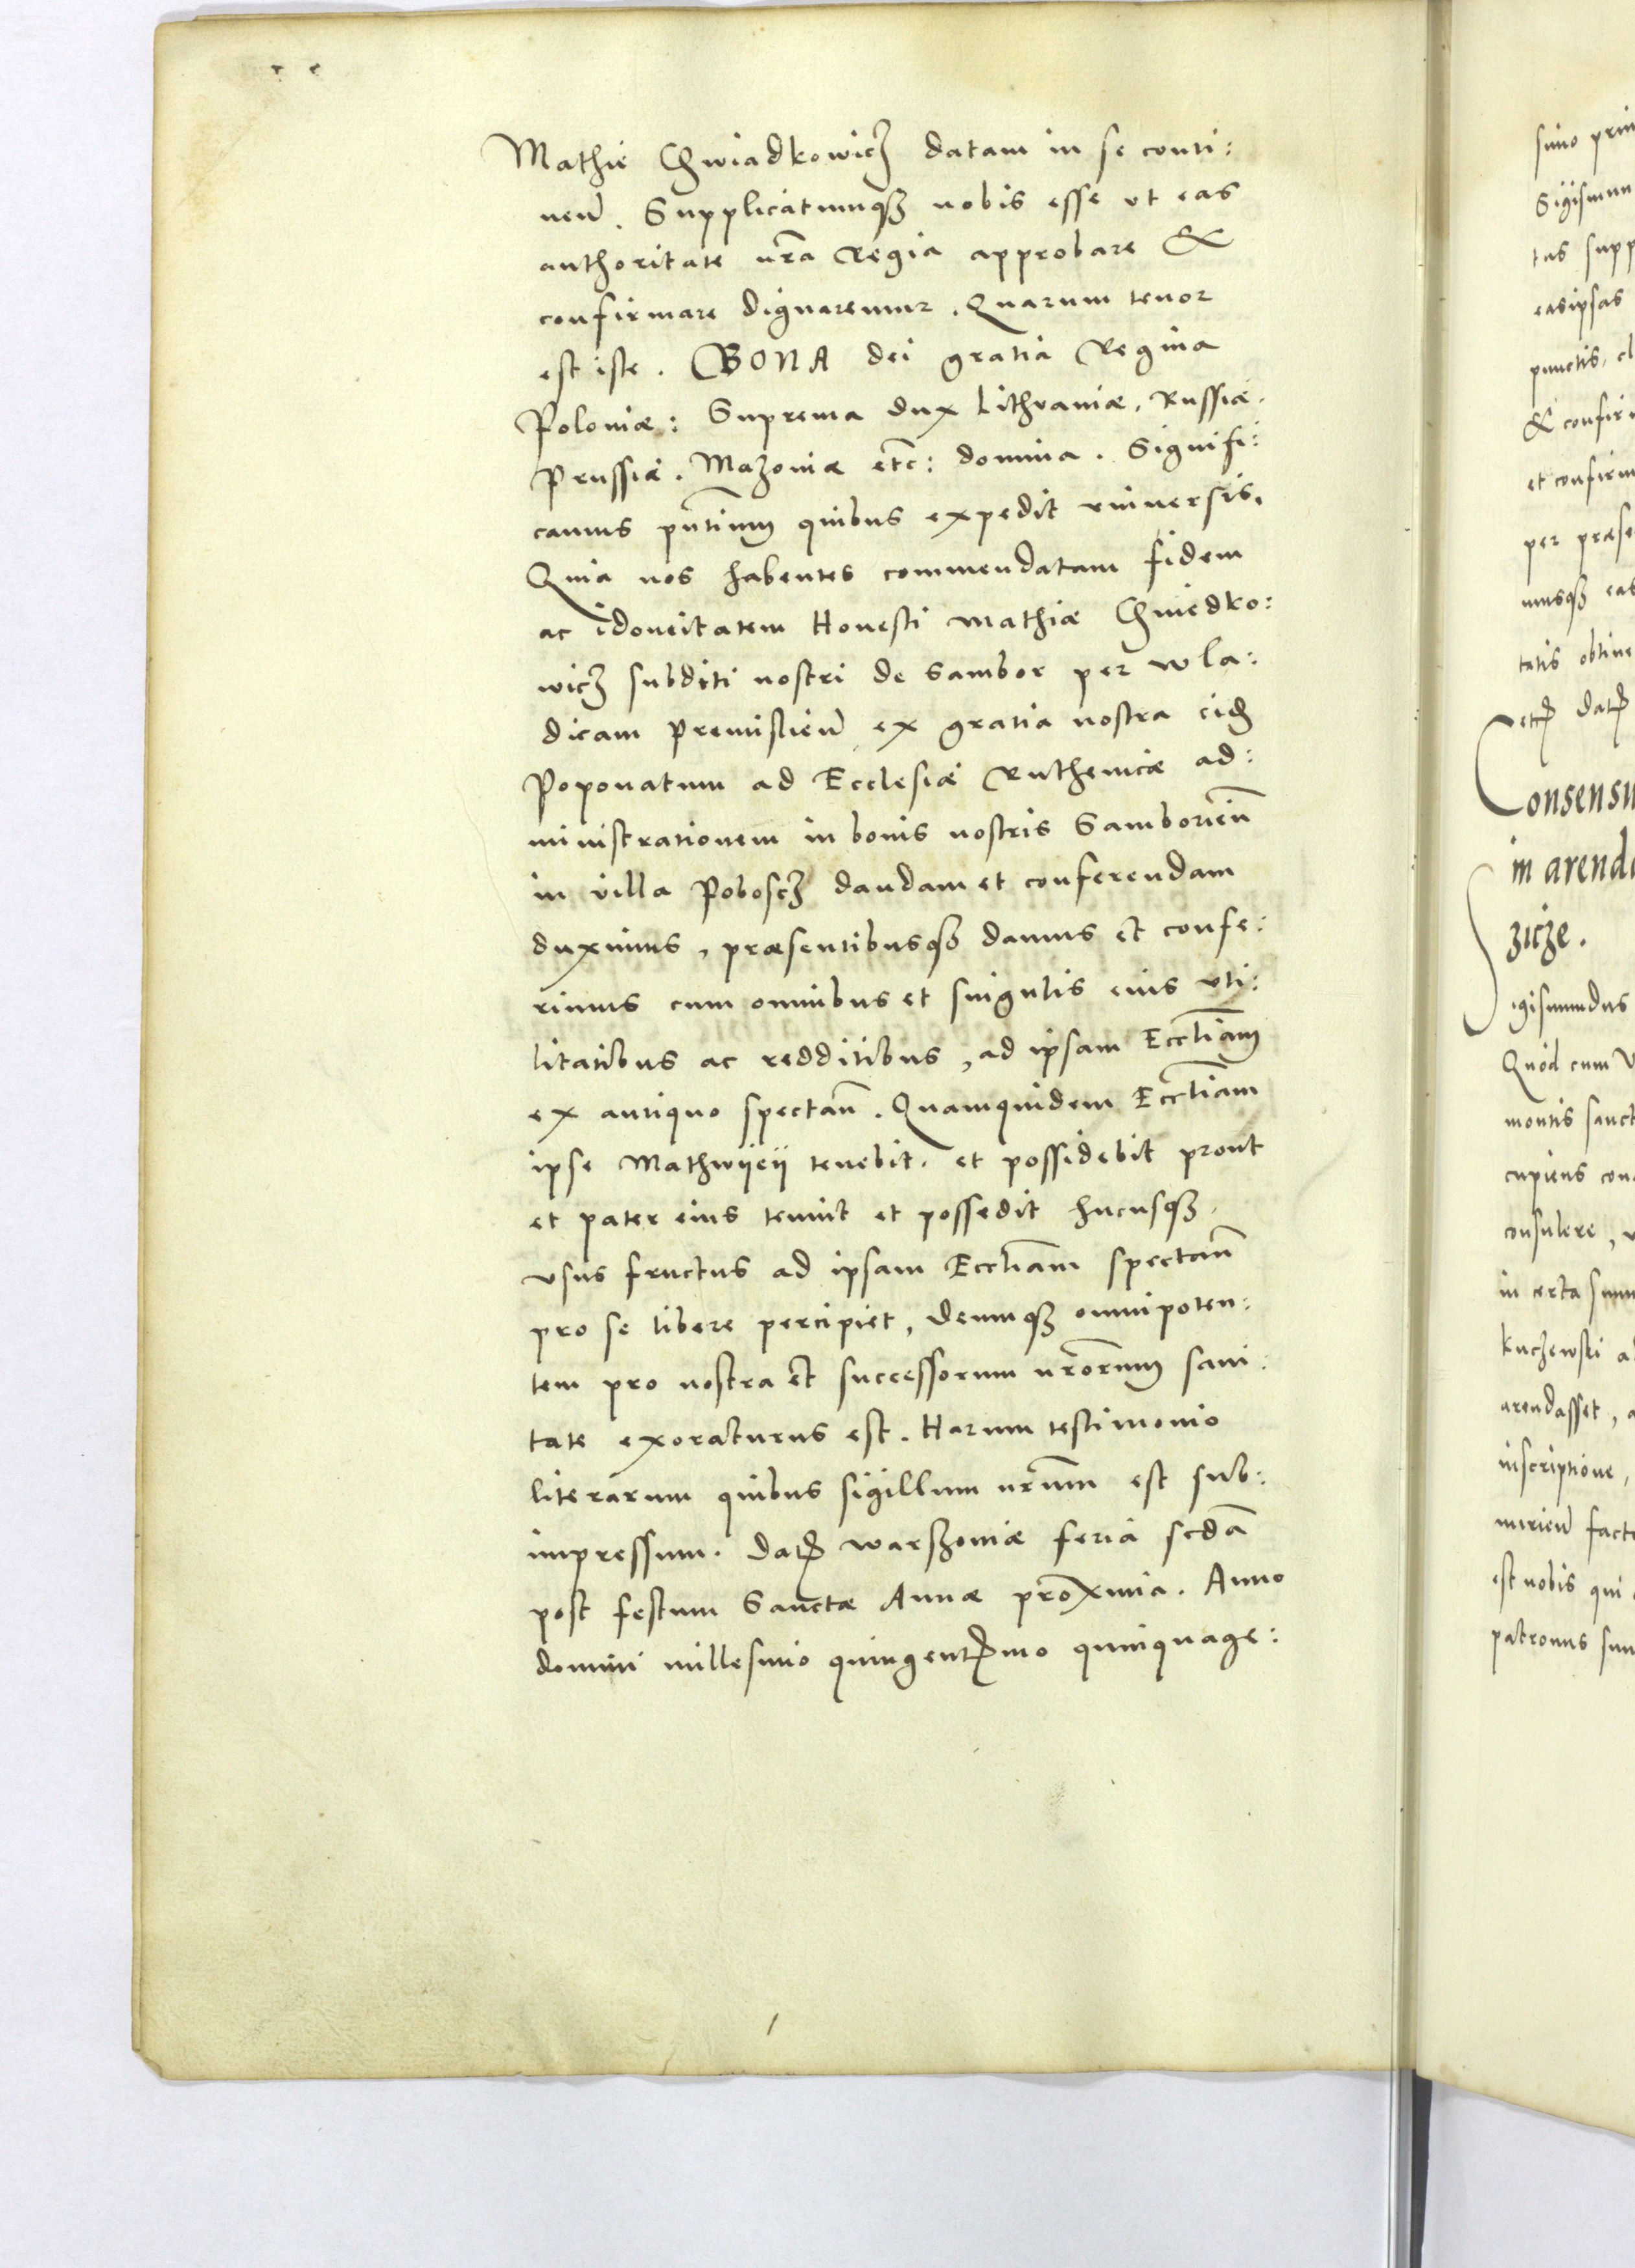 Mathię Chwiadkowicz datam in se conti:
nen̄. Supplicatumqꝫ nobis esse vt eas
authoritate nr̄a Regia approbare &
confirmare dignaremur. Quarum tenor
est iste. BONA dei gratia Regina
Poloniæ: Suprema dux Lithvaniæ, Russiæ.
Prussiæ. Mazoviæ etc̄: domina. Signifi:
camus pn̄tium quibus expedit vniversis.
Quia nos habentes commendatam fidem
ac idoneitatem Honesti Mathiæ Chwiedko:
wicz subditi nostri de Sambor per wla:
dicam Premislien̄, ex gratia nostra eiꝺ
Poponatum ad Ecclesiæ Ruthenicæ ad:
ministrationem in bonis nostris Samborien̄
in villa Poboscz dandam et conferendam
duximus, præsentibusqꝫ damus et confe:
rimus cum omnibus et singulis eius vti:
litatibus ac redditibus, ad ipsam Eccl̄iam
ex antiquo spectan̄. Quamquidem Eccl̄iam
ipse Mathwijeij tenebit. et possidebit prout
et pater eius tenuit et possedit hucusqꝫ.
vsus fructus ad ipsam Eccl̄iam spectan̄
pro se libere percipiet, deumqꝫ omnipoten:
tem pro nostra et successorum nr̄orum sani:
tate exoraturus est. Harum testimonio
literarum quibus sigillum nr̄um est sub:
impressum. Datꝭ warszoviæ feria scd̄a
post festum Sanctæ Annæ proxima. Anno
domini millesimo quingentꝭmo quinquage:
simo prim
Sigismun
tus supp
easipsas
punctis, cl
& confirm
et confirm
per præse
musqꝫ eas
tatis obtine
etcꝭ datꝭ
Consensu
in arenda
zicze.
Sigismundus
Quod cum V
montis sanct
cupiens con
consulere, v
in certa sum
kuczewski a
arendasset, a
inscriptione,
mirien̄ fact
est nobis qui
patronus sum